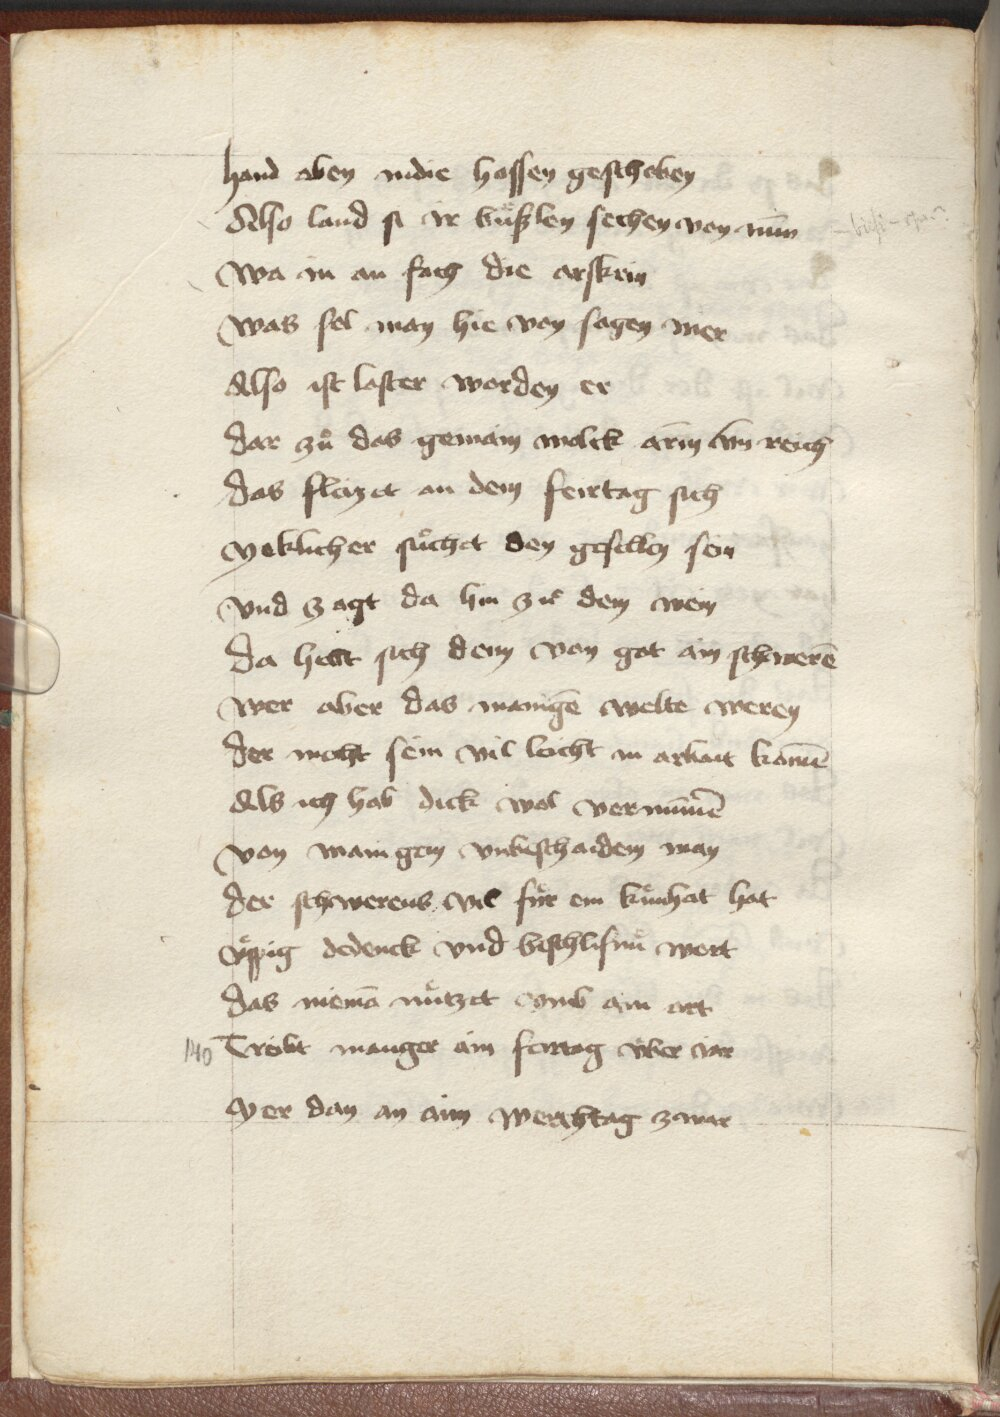 hand oben indie hossen geschoben
Also land si ir bu̍ſzlen sechen von nun̄
Wa in an fach die arskrin
Was sol man hie von sagen mer
Also ist laster worden er
Dar zů das gemain wolck arm vn̄ reich
Das flizet an dem feirtag sich
Yeklicher sůchet den gesellen sein
Vnd zogt da hin zů dem wein
Da hebt sich denn von got ain schwerē
Wer aber das manigē welte weren
Der mocht sein vil leicht in arbait komē
Als ich hab dick wol vernumē
Von manigem vnbeschaidem man
Der schwerens vil fůr ein kůnhat hat
Vͤppig gedenck vnd beschlisnů wort
Das niemā nůtzet vmb ain ort
140 Tribt manger ain feirtag v̍ber iar
Mer dan an aim werchtag zwar